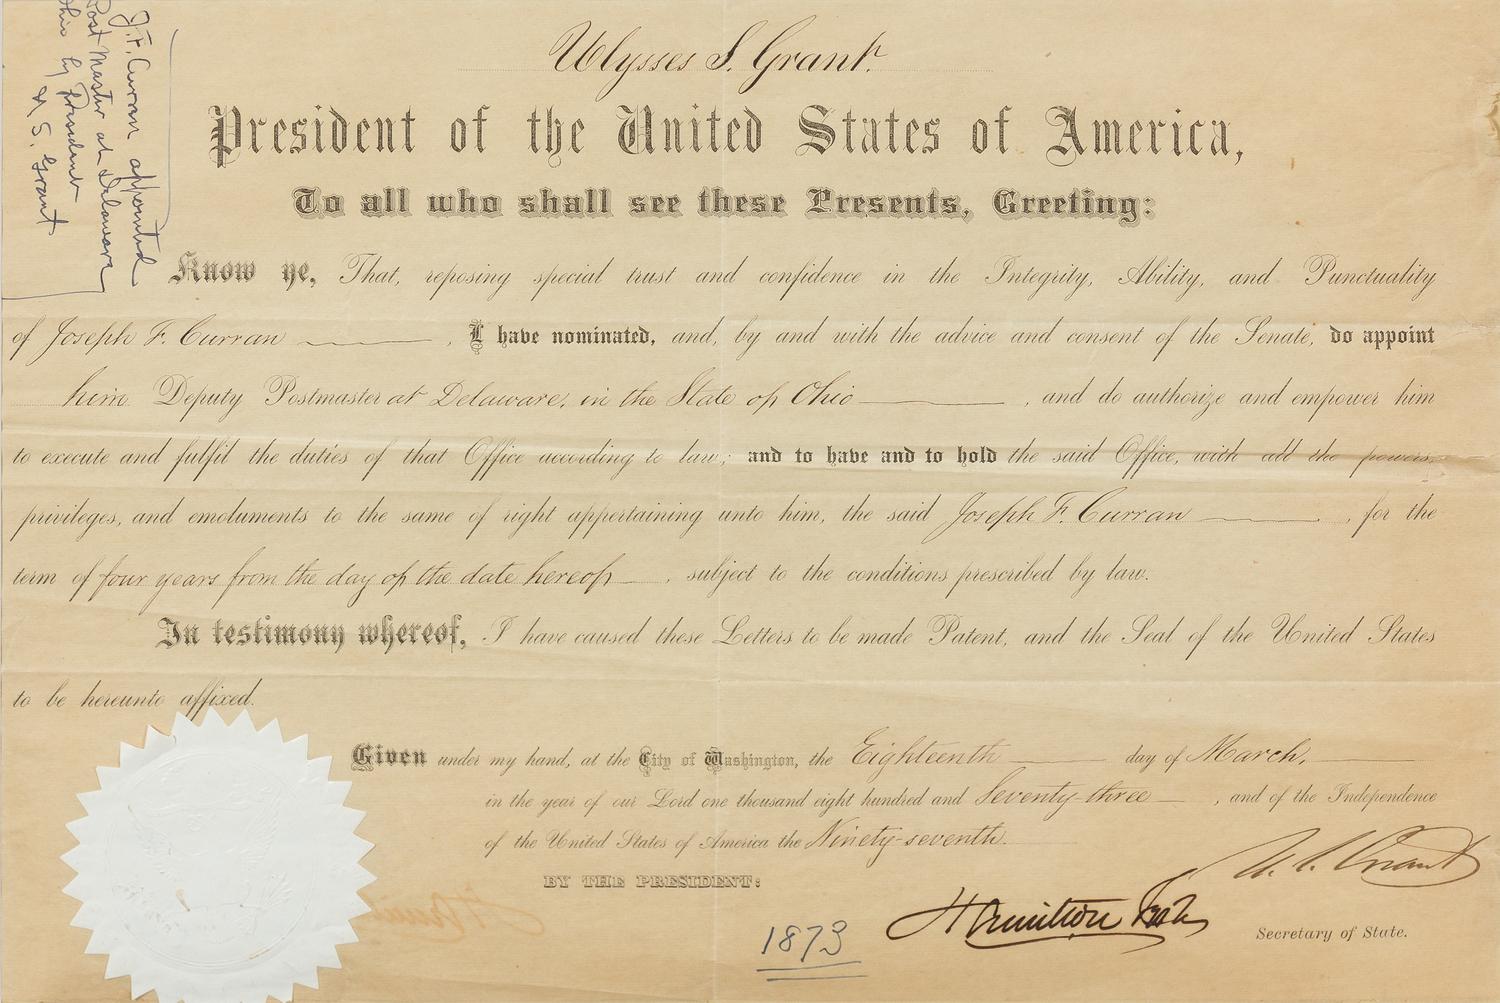 J. F. Curran appointed
Post Master at Delaware
Ohio by President
U. S. Grant
Ulysses S. Grant.
President of the United States of America,
To all who shall see these Presents, Greeting:
Know ye, That, reposing special trust and confidence in the Integrity, Ability, and Punctuality
of Joseph F. Curran , I have nominated, and, by and with the advice and consent of the Senate, do appoint
him Deputy Postmaster at Delaware, in the State of Ohio , and do authorize and empower him
to execute and fulfil the duties of that Office according to law; and to have and to hold the said Office, with all the powers,
privileges, and emoluments to the same of right appertaining unto him, the said Joseph F. Curran , for the
term of four years from the day of the date hereof , subject to the conditions prescribed by law.
In testimony whereof, I have caused these Letters to be made Patent, and the Seal of the United States
to be hereunto affixed.
Given under my hand, at the City of Washington, the Eighteenth day of March,
in the year of our Lord one thousand eight hundred and Seventy-three , and of the Independence
of the United States of America the Ninety-seventh.
U. S. Grant
BY THE PRESIDENT:
Hamilton Fish
Secretary of State.
1873